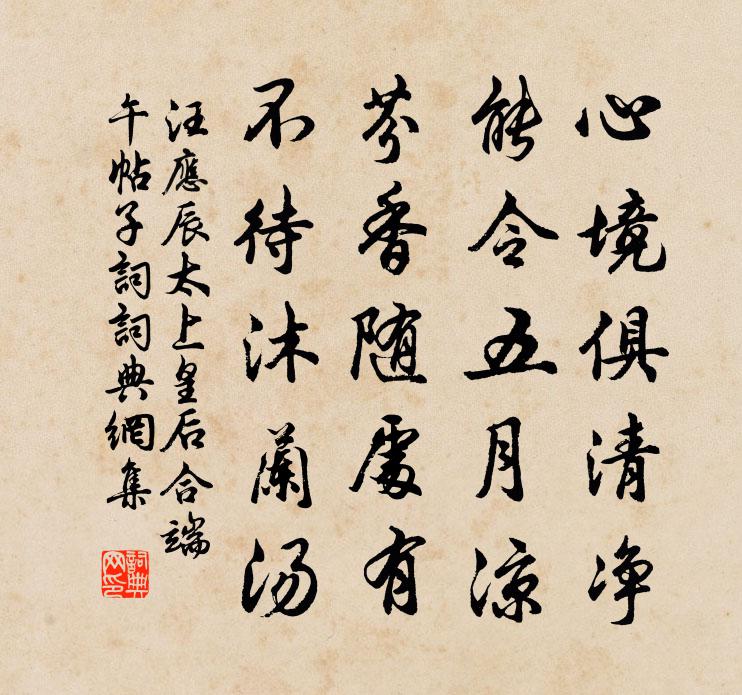 心境俱清净
能令五月凉
芬香随處有
不待沐蘭湯
汪應辰太上皇后合端
午帖子詞詞典網集
詞典
网印